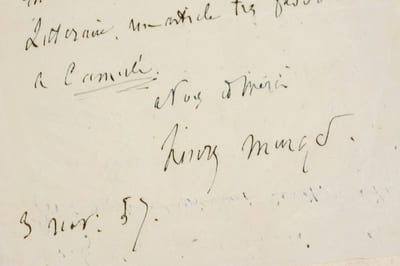 Littéraire, un article très favo
à Camille.
à vous et merci
Henry Murger.
3 nov. 57.